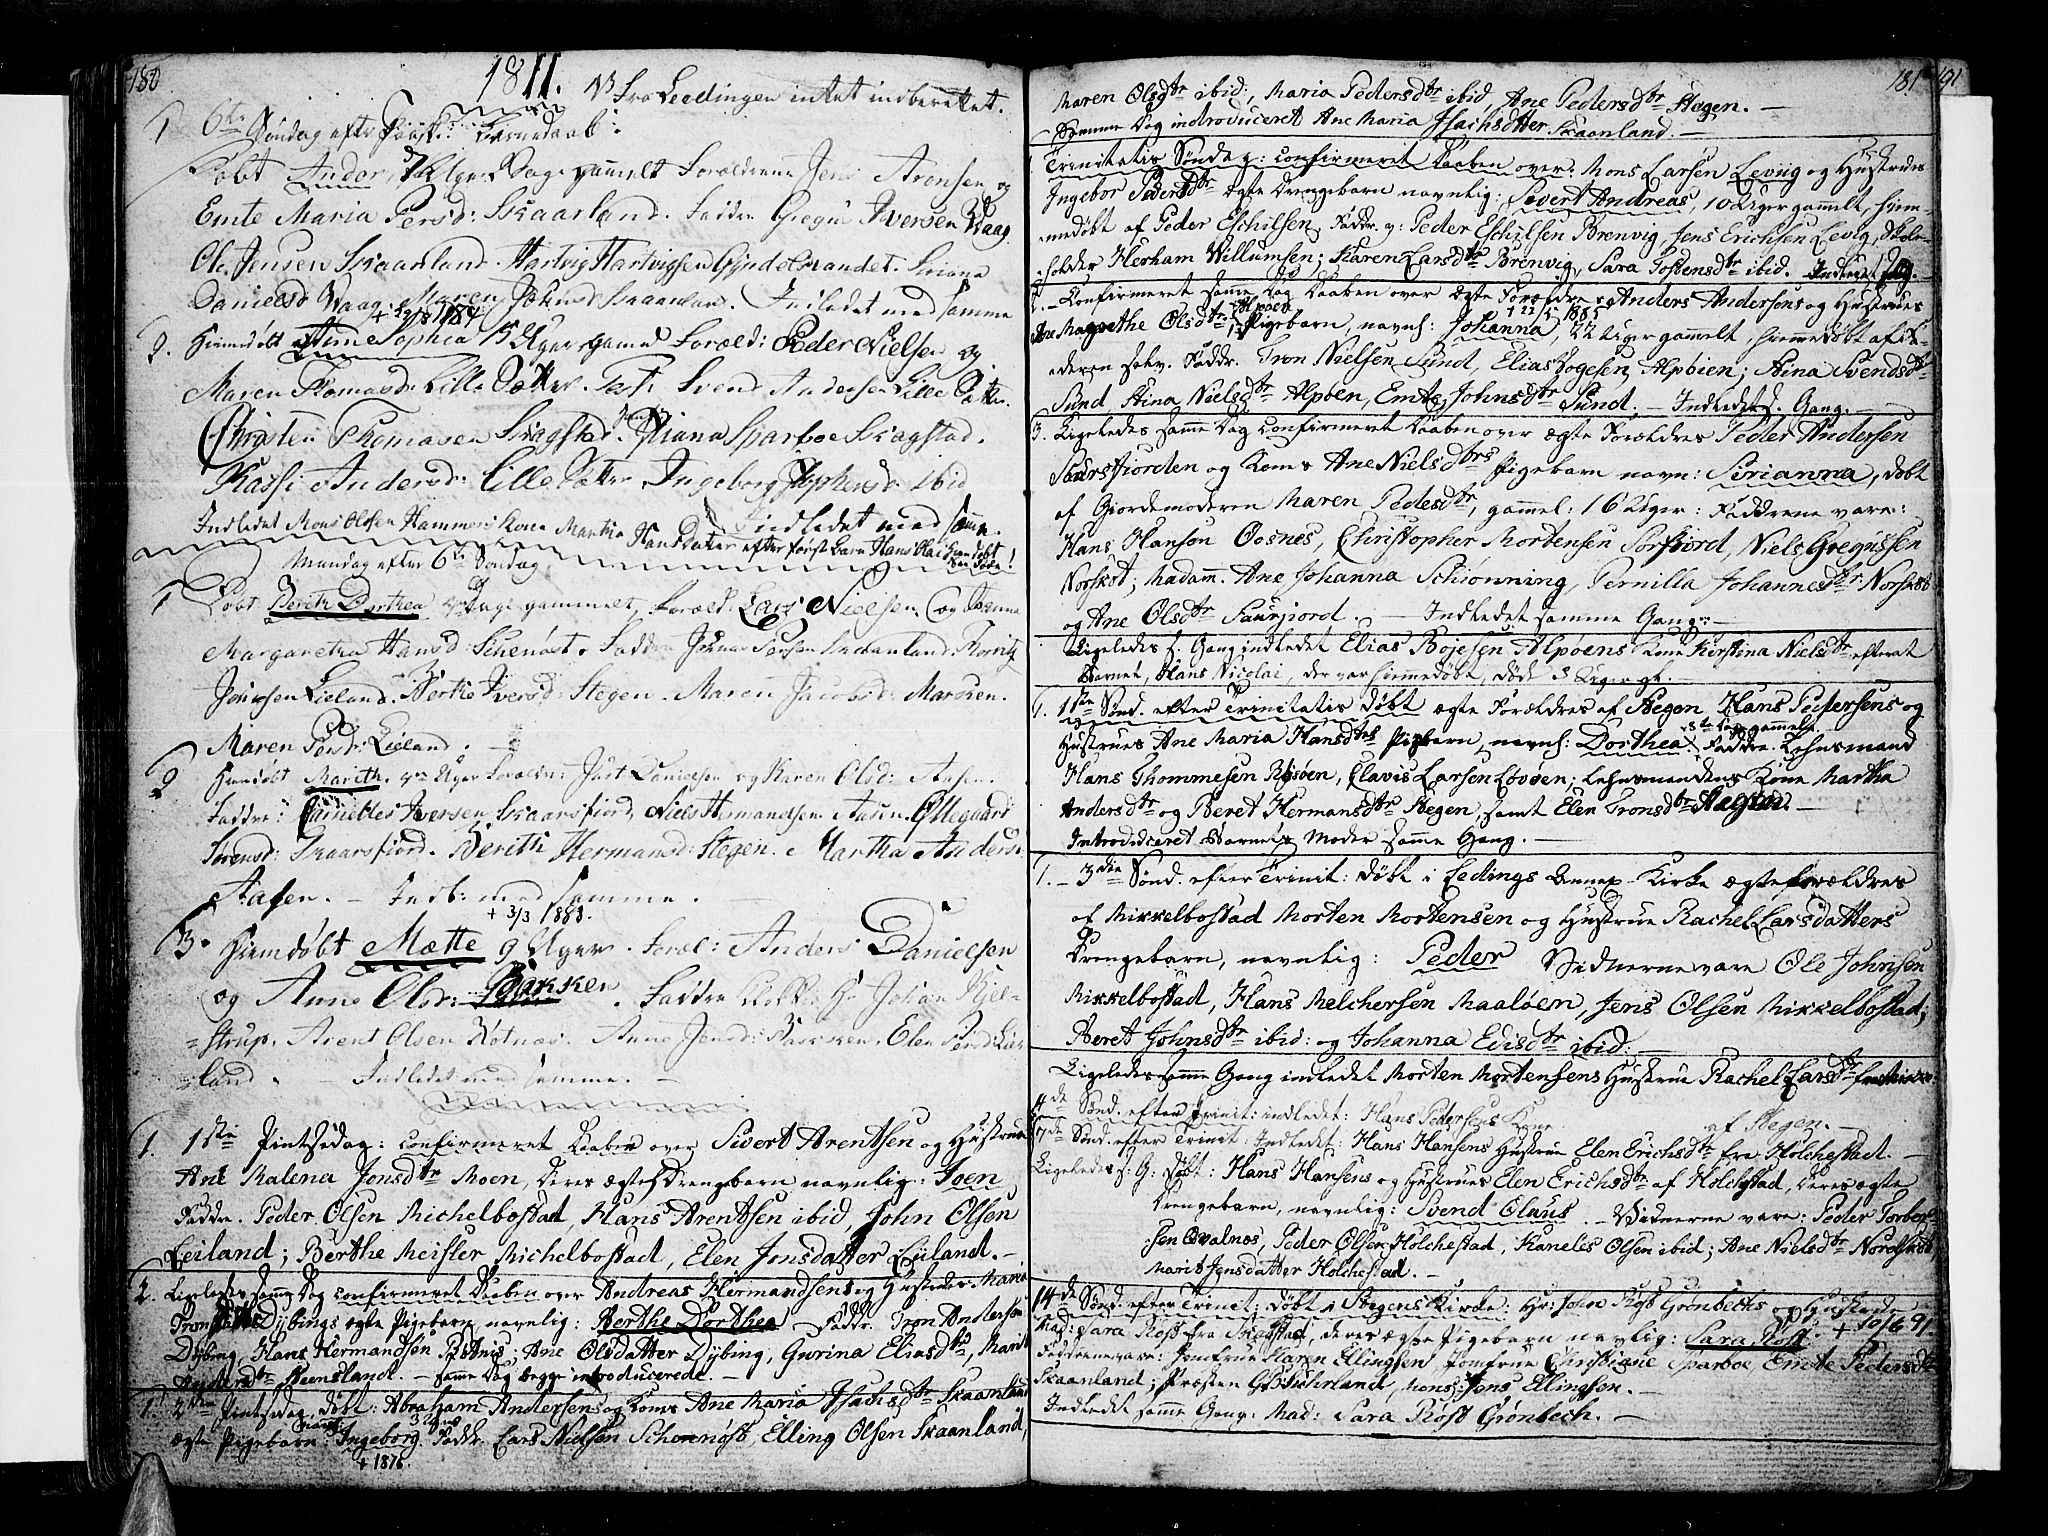 180
1811. NB fra Leedingen intet indberettet.
1 6te Søndag efter Paask: Barnedaab:
Døbt Ander, Uger Dage gammelt Forældrene Jens Aronsen og
Emte Maria Persd: Skaarland. Faddr. Gregus Iversen Vaag
Ole Jensen Skaanland. Hartvig Hartvigsen Gyndelvandet. Siriana
Danielsd Vaag. Maren Skaanlan. Indledet med samme
2. Hiemdøbt Anne Sophia Uger gamel Foræld: Peder Nielsen og
Maren Thomasd: Lille Sætter. Test. Svend Andersen Lille Sætter.
Christen Thomasen Skagstad. Diana Sparboe Skagstad.
Kasti Andersd: Lille Sætter Ingeborg ibid
Indledet med samme.
Indledet Mons Olsen Hammers kone Martha Hansdatter efter første barn Hans
Mandag efter 6te Søndag
1 Døbt Berith Dorthea Dage gammelt, Foræld: Lars Nielsen og Hanna
Margaretha Hansd: Schenøst. Faddr Skaanland.
Jensen Lieland. Berthe Iversd: Stegen. Maren Jacobsd: Marken.
Maren Persd: Lieland. —
2 Hiemdøbt Marith. Uger Foræld: Just Danielsen og Karen Olsd: Aasen.
Faddr: Cornelles Iversen Skaarsfiord, Niels Hermandsen Aasen. Ollegaard
Sørensd: Skaarsfiord. Berith Hermansd: Stegen. Martha Andersd
Aasen. — Indl: med samme.
+ 3/3 1883.
3. Hiemdøbt Mætte 9 Uger. Foræl: Anders Danielsen
og Anne Olsd: Bakken. Faddre Klokker Hr Johan Kjel-
=strup. Arent Olsen Røtnæs. Anne Jensd: Bakken, Elen Persd: Lie
land. — Indledet med samme. —
1. 1ste Pintsedag: confirmeret Daaben over Sivert Arentsen og Hustrues
Ane Malena Jonsdtr Moen, deres ægte Drengebarn navnlig: Joen
Faddr. Peder Olsen Michelbostad, Hans Arentsen ibid, John Olsen
Leiland; Berthe Meisler Michelbostad, Elen Jonsdatter Leiland. —
2. Ligeledes samme Dag confirmeret Daaben over Andreas Hermandsens og Hustrues Maria
Dybings ægte Pigebarn, navnlig: Berthe Dorthea Faddr. Tron Andersen
Dybing, Hans Hermandsen Bøtnis; Ane Olsdatter Dybing, Gurina Eliasdtr, Marit
Andersdtr Steensland. — samme Dag begge introducerede. —
1. 2den Pintsedag døbt: Abraham Andersens og Kones Ane Maria Isachsdtr Skaanland
ægte Pigebarn navnl: Ingeborg 3 Ugers Faddr. Lars Nielsen Schonnøst, Elling Olsen Skaanland,
+ 1876.
181 191
Maren Olsdtr ibid:, Maria Pedersdtr ibid, Ane Pedersdtr Stegen. —
Samme Dag introduceret Ane Maria Isachsdatter Skaanland. —
1 Trinitatis Søndag: confirmeret Daaben over: Mons Larsen Leviig og Hustrues
Ingebor Pedersdtr ægte Drengebarn navnlig: Sivert Andreas, 10 Uger gammelt, hiem-
=medøbt af Peder Eschilsen, Faddr. v: Peder Eschilsen Brenvig, Jens Erichsen Levig, Skole-
holder Herham Willumsen; Karen Larsdtr Brenvig, Sara Tostensdtr ibid.
2. — Confirmeret samme Dag Daaben over ægte Forældre Anders Andersens og Hustrues
Ane Magrethe Olsdtr Alpøen Pigebarn, navnl: Johanna, 22 Uger gammelt, hiemmedøbt af Fa-
+ 22/5 1885
=deren selv. Faddr. Tron Nielsen Sund, Elias Bogesen, Alpøien; Stina Svendsdtr
Sund Stina Nielsdtr Alpøen, Emte Johnsdtr Sund. — Indledet s. Gang. —
3. Ligeledes samme Dag confirmeret Daaben over ægte Forældres Peder Andersen
Saursfjorden og Kones Ane Nielsdtrs Pigebarn navn: Sirianna, døbt
af Giordemoderen Maren Pedersdtr, gammel: 16 Uger: Faddrene vare:
Hans Hanson Oosnes, Christopher Mortensen Sorfjord, Niels Gregussen
Norskot; Madam. Ane Johanna Schiønning, Pernilla Johannesdtr Norskot
og Ane Olsdtr Saurfjord. — Indledet samme Gang: —
Ligeledes s. Gang indledet Elias Bojesen Alpøens kone Kirstina Nielsdtr efter at
Barnet, Hans Nicolai, der var hiemmedøbt, døde 3 Uger gl. —
1. 1ste Sønd. efter Trinitatis døbt ægte Forældres af Stegen Hans Pedersens og
Hustrues Ane Maria Hansdtrs Pigebarn, navnl: Dorthea, Faddr. Lehnsmand
Hans Thommesen Røsøen, Clavis Larsen Løvøen; Lehnsmandens kone Martha
Andersdtr og Beret Hermansdtr Stegen, samt Elen Tronsdtr Skagstad. —
Introduceret Barnets Moder samme Gang. —
1. — 3die Sønd. efter Trinit: døbt i Ledings Annex-Kirke ægteforældres
af Mikkelbostad Morten Mortensen og Hustrue Rachel Larsdatters
Drengebarn, navnlig: Peder Vidnerne vare Ole Johnsen
Mikkelbostad, Hans Melchersen Maaløen, Jens Olsen Mikkelbostad;
Beret Johnsdtr ibid: og Johanna Edisdtr ibid: —
Ligeledes samme Gang indledet Morten Mortensens Hustrue Rachel Larsdtr fra
4de Sønd. efter Trinit: indledet: Hans Pedersens Kone af Stegen. —
7de Sønd. efter Trinit: Indledet: Hans Hansens Hustrue Elen Erichsdtr fra Holchestad. —
Ligeledes s: G: døbt: Hans Hansens og Hustrues Elen Erichsdtr af Holchstad, deres ægte
Drengebarn, navnlig: Svend Claus. — Vidnerne vare: Peder Torber
sen Qvalnæs, Peder Olsen Holchestad, Kaneles Olsen ibid; Ane Nielsdtr Nordskot
Marit Jensdatter Holchestad. —
14de Sønd. efter Trinit: døbt i Stegens Kirke: Hr: John Rost Grønbechs og Hustrue
Mad: Sara Rost fra Skagstad, deres ægte Pigebarn navnlig: Sara Rost + 10/6 91
Fadderne vare: Jomfrue Karen Ellingsen, Jomfrue Christiane Sparboe Emte Pedersdtr
Skaanland; Præsten Suhrland, Mons: Jens Ellingsen. —
Indledet samme Gang: Mad: Sara Rost Grønbech. —